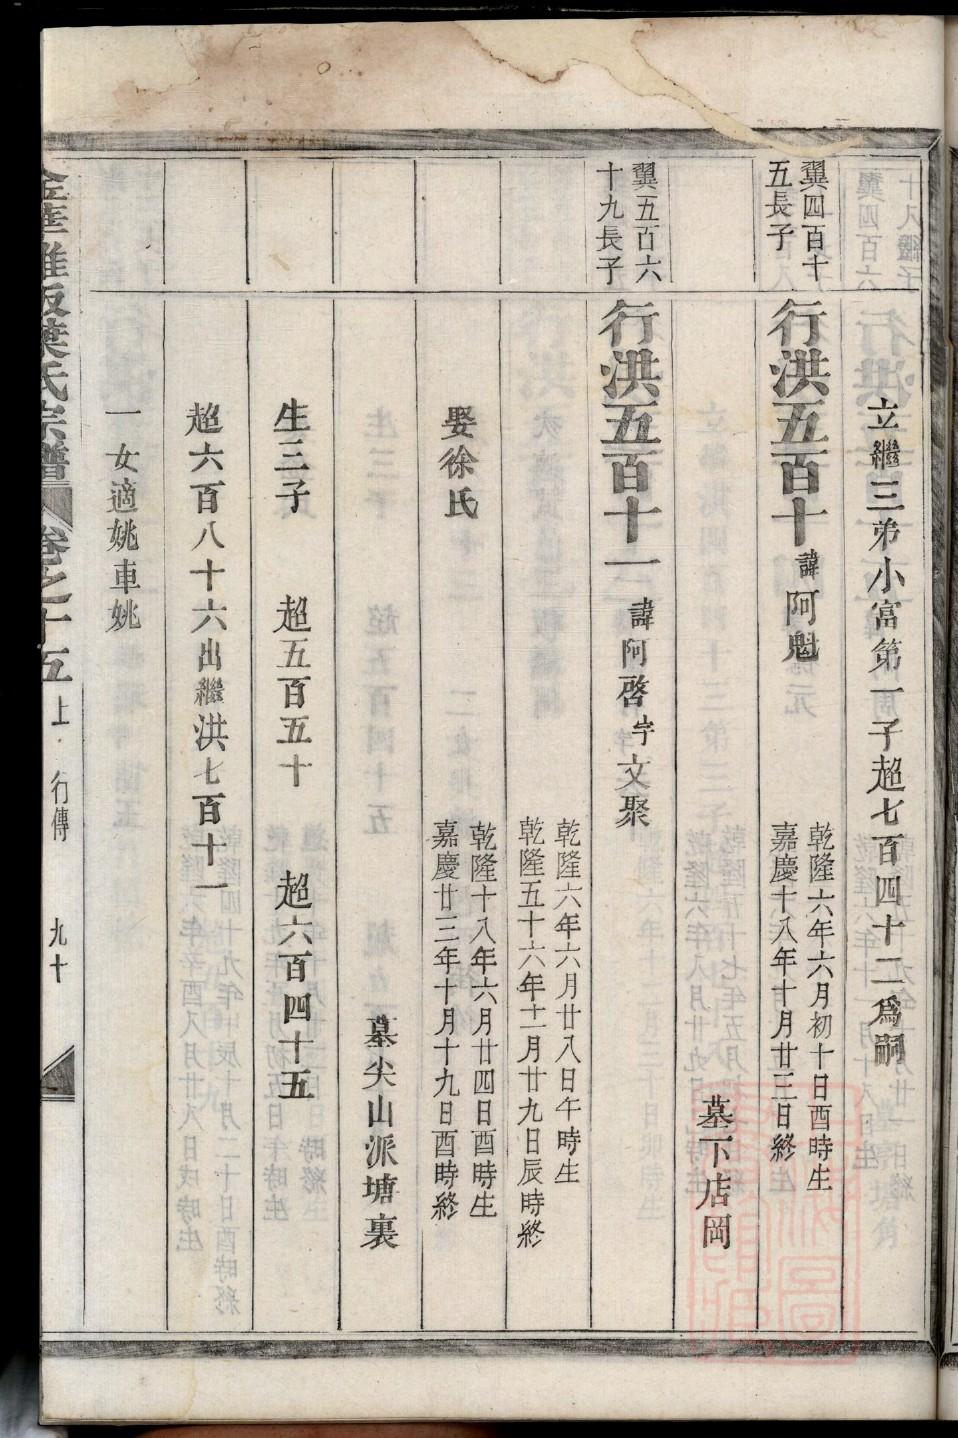 立繼三弟小富第一子超七百四十二為嗣
翼四百十
五長子
行洪五百十 諱阿魁
乾隆六年六月初十日酉時生
嘉慶十八年十月廿三日終
墓下店岡
翼五百六
十九長子
行洪五百十一 諱阿啓字文聚
乾隆六年六月廿八日午時生
乾隆五十六年十二月廿九日辰時終
娶徐氏
乾隆十八年六月廿四日酉時生
嘉慶廿三年十月十九日酉時終
墓尖山派塘裏
生三子 超五百五十 超六百四十五
超六百八十六出繼洪七百十一
一女適姚車姚
金華雅坂葉氏宗譜 卷之十五上 行傳 九十